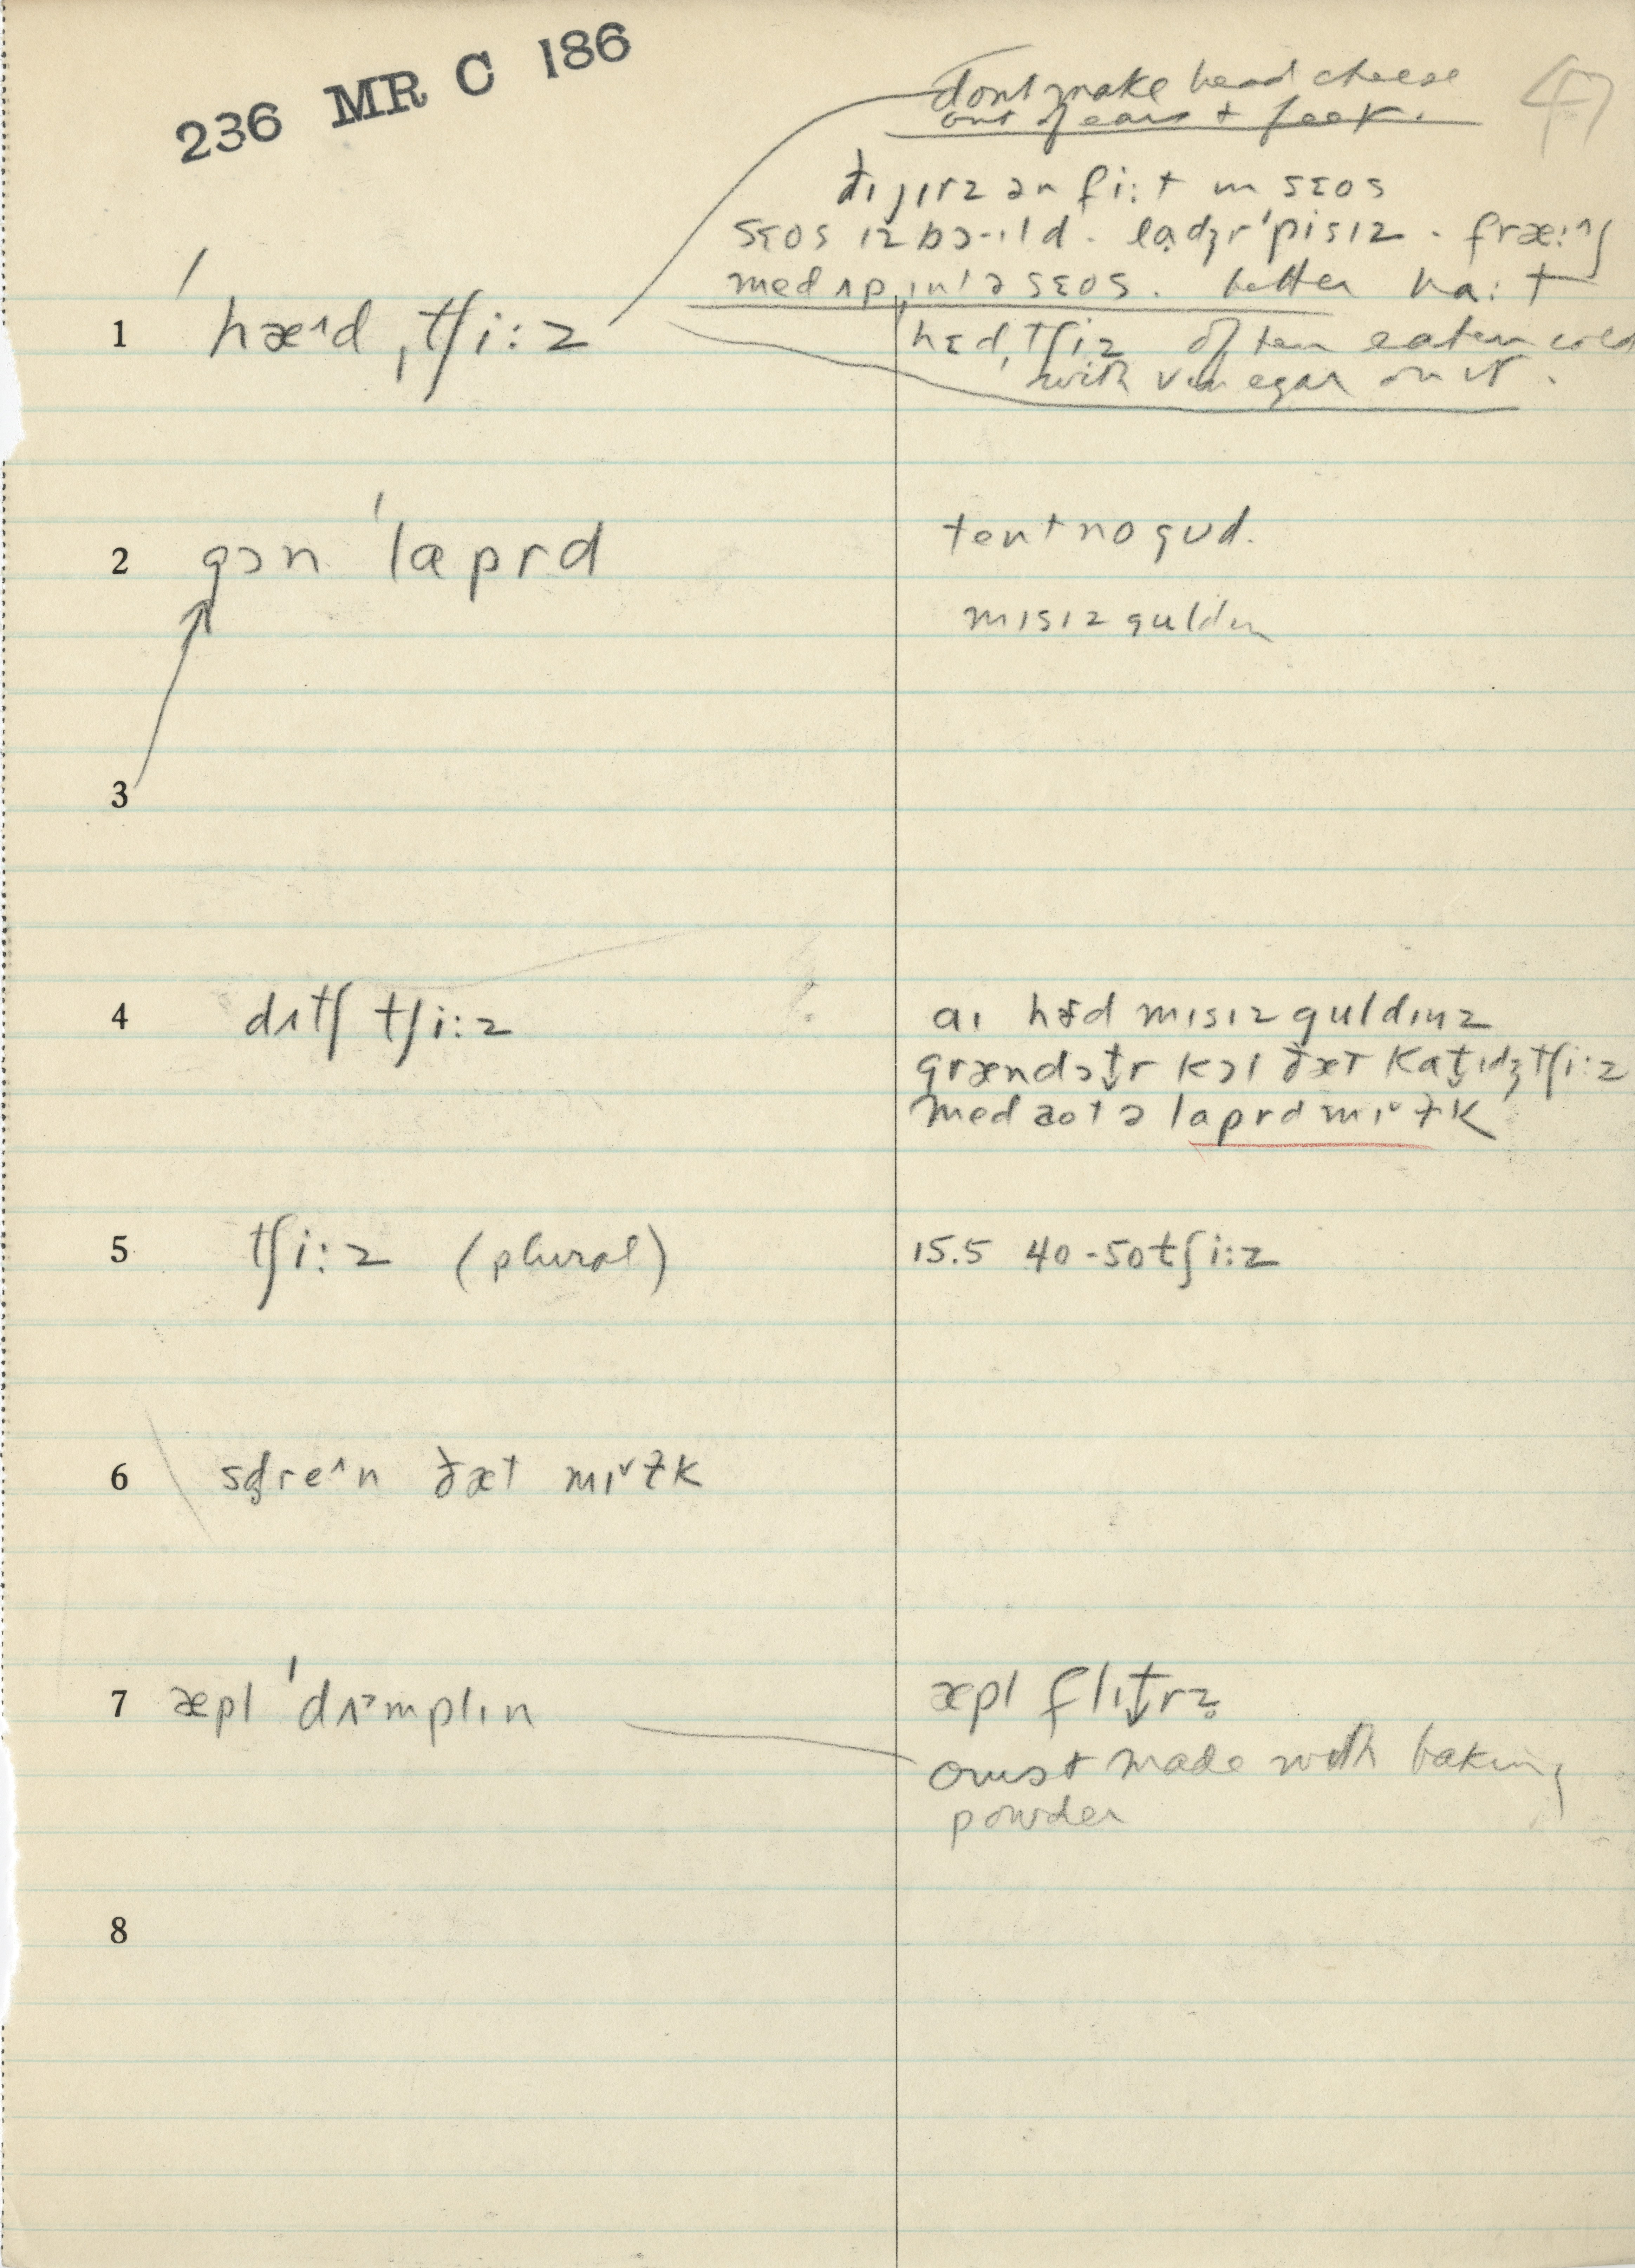 236 MR C 186
47
dont make head cheese
out of ears + feet.
ðɪ jɪrz ən fi:t ɪn sɛos
sɛos ɪz bɔ-ɪld. laḍʒr ˈpisɪz. fræ:ɪŋ
med ʌp ɪntə sɛos. better ha:t
1 ˈhæ^d ˌtʃi:z
hɛd ˌtʃiz often eaten cold
with vinegar on it.
2 gɔn ˈlaprd
tent no gud.
mɪsɪz guldɪn
3
4 dʌtʃ tʃi:z
aɪ hɜd mɪsɪz guldɪnz
grændɔt̬r kɔl ðæt kat̬ɪdʒ tʃi:z
med aot ə laprd mɪ˅ɫk
5 tʃi:z (plural)
15.5 40-50 tʃi:z
6 sḍre^n ðæt mɪ˅ɫk
7 æpl ˈdʌ˃mplɪn
æpl flɪt̬rz̥
crust made with baking
powder
8